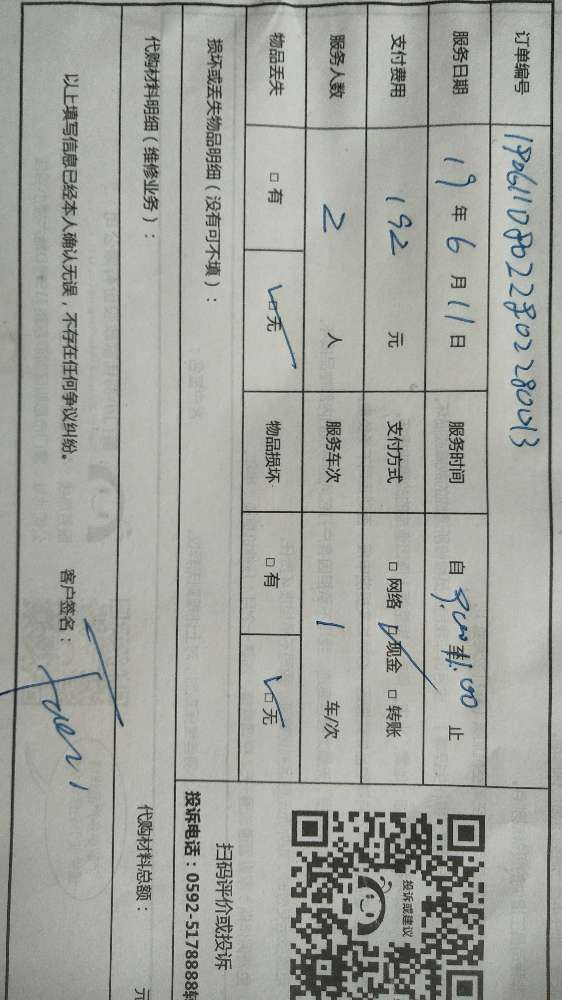 订单编号
服务日期 19年6月11日 服务时间 自 至 11:00 止
支付费用 192 元 支付方式 □网络 ☑现金 □转账
服务人数 2 人 服务车次 1 车/次
物品丢失 □有 ☑无 物品损坏 □有 ☑无
损坏或丢失物品明细(没有可不填):
代购材料明细(维修业务): 代购材料总额: 元
以上填写信息已经本人确认无误,不存在任何争议纠纷。 客户签名:
投诉或建议
扫码评价或投诉
投诉电话:0592-5178888转